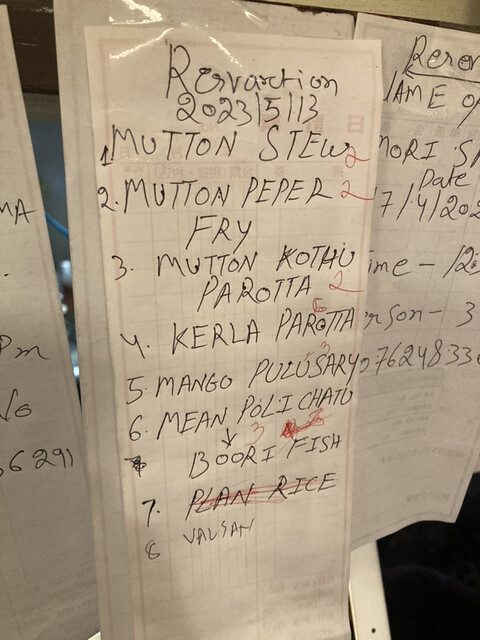 Rervarction
2023/5/13
1. MUTTON STEW 2
2. MUTTON PEPER 2
FRY
3. MUTTON KOTHU
PAROTTA 2
6
4. KERLA PAROTTA
3
5. MANGO PULUSARY
6. MEAN POLICHATU
↓ 3
BOORI FISH
7. PLAN RICE
8 VALSAN
MA
Pm
No
6291
Rerer
NAME OF
MORI S
Date
7/4/202
ime - 12:
rson - 3
076248336